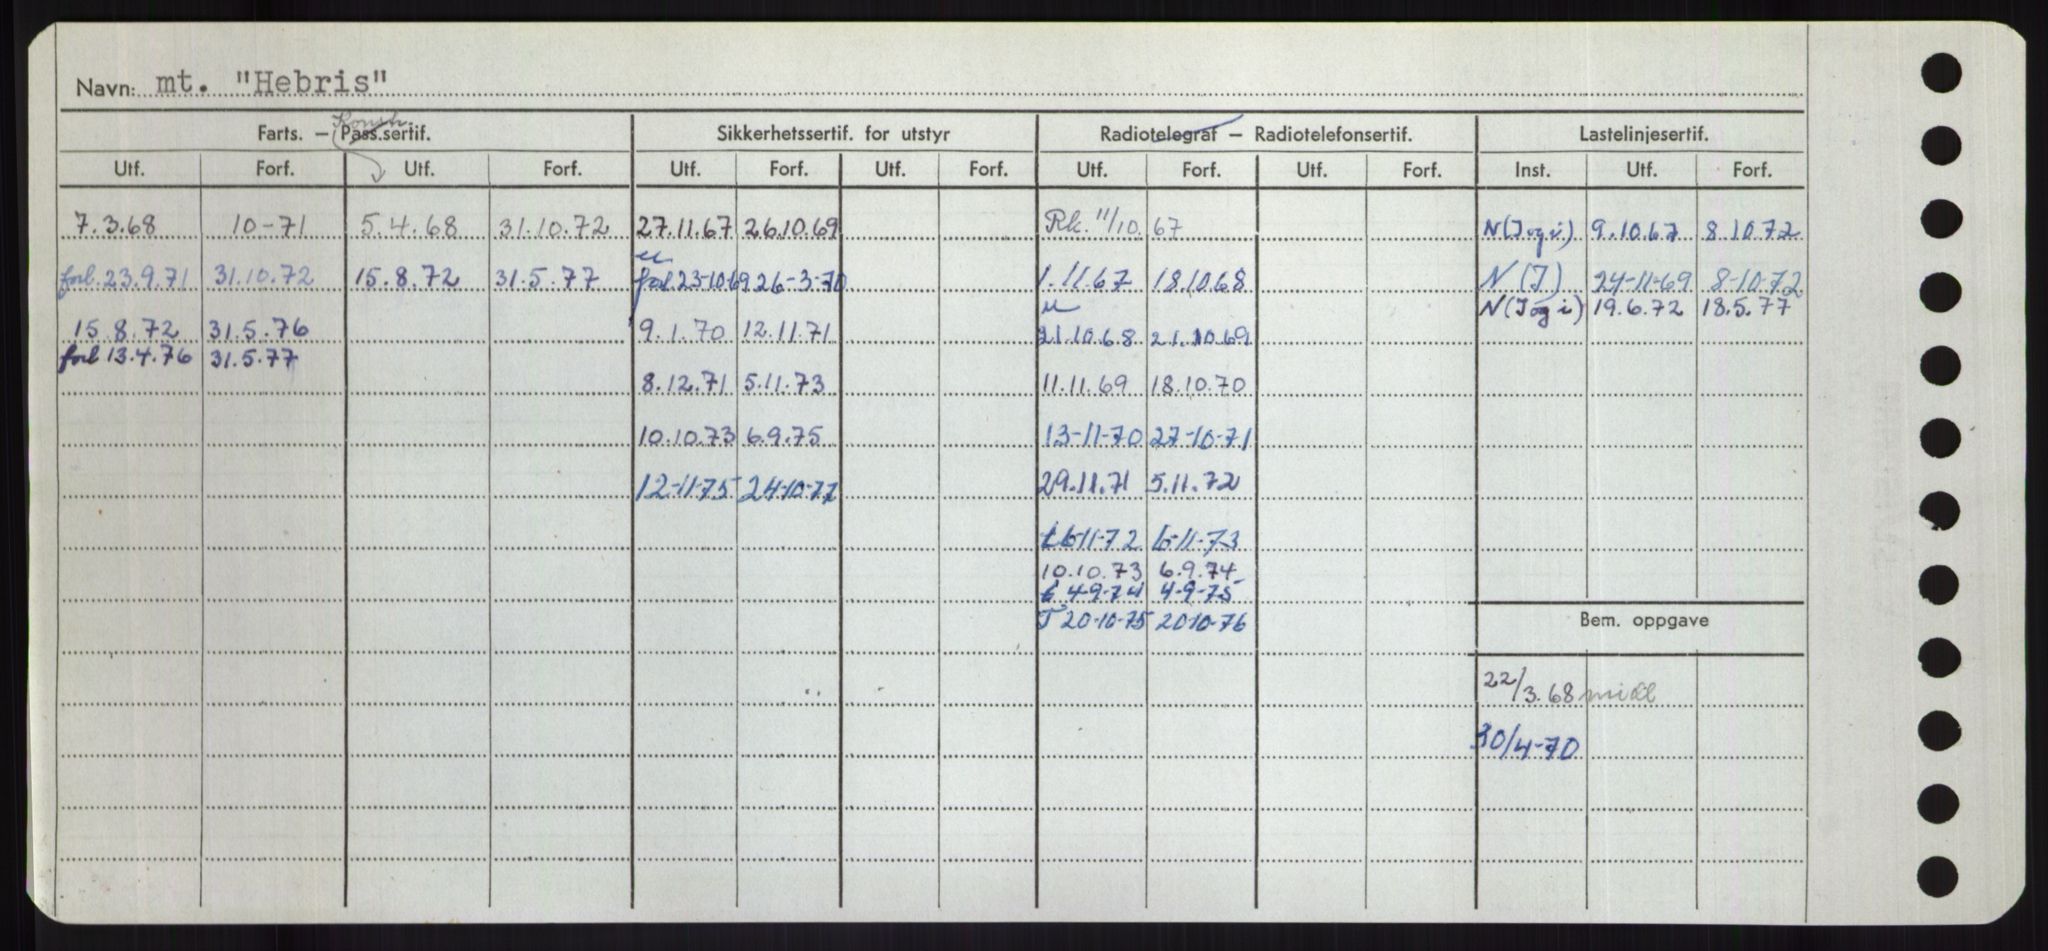 Navn: mt. "Hebris"
Konstr.
Farts. – Pass.sertif. Sikkerhetssertif. for utstyr Radiotelegraf – Radiotelefonsertif. Lastelinjesertif.
Utf. Forf. Utf. Forf. Utf. Forf. Utf. Forf. Utf. Forf. Utf. Forf. Inst. Utf. Forf.
7.3.68 10-71 5.4.68 31.10.72 27.11.67 26.10.69 Rk. 11/10.67 N(I og i) 9.10.67 8.10.72
forl. 23.9.71 31.10.72 15.8.72 31.5.77 forl 23-10-69 26-3-70 1.11.67 18.10.68 N(I) 24-11-69 8-10-72
N(I og i) 19.6.72 18.5.77
15.8.72 31.5.76 9.1.70 12.11.71 21.10.68 21.10.69
forl 13.4.76 31.5.77
8.12.71 5.11.73 11.11.69 18.10.70
10.10.73 6.9.75 13-11-70 27-10-71
12-11-75 24-10-77 29.11.71 5.11.72
6-11-72 6-11-73
10.10.73 6.9.74
4-9-74 4-9-75
T 20-10-75 20-10-76
Bem. oppgave
22/3.68 midl
30/4-70